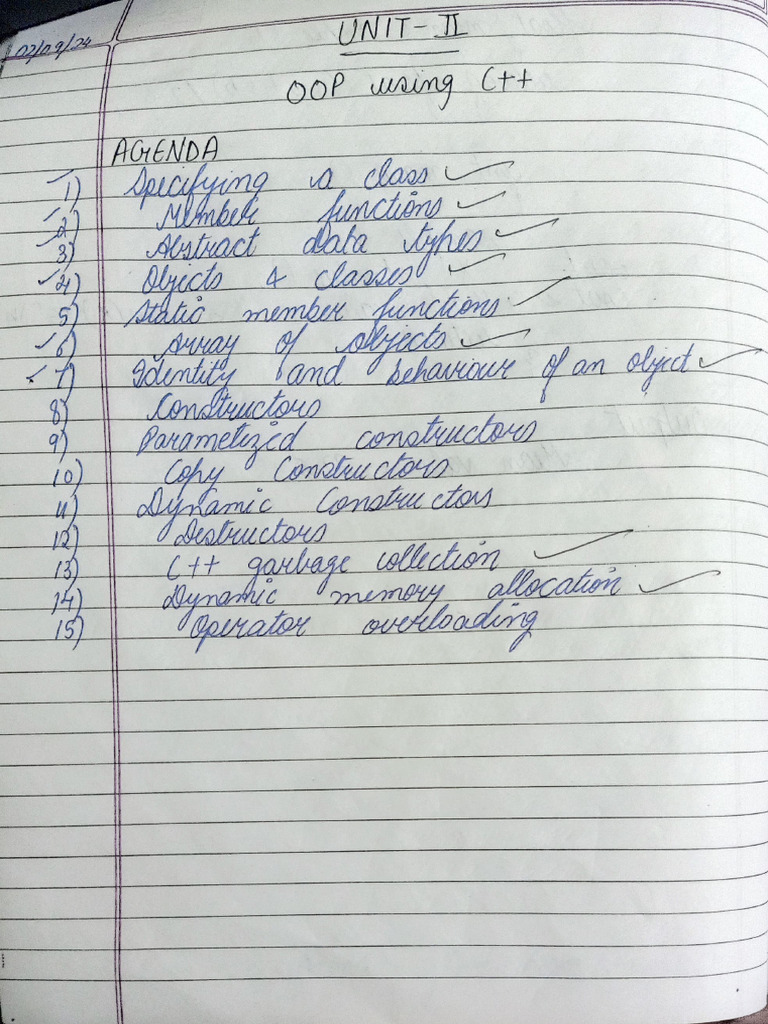 UNIT-II
02/09/24
OOP using C++
AGENDA
1) Specifying a class ✓
2) Member functions ✓
3) Abstract data types ✓
4) Objects & classes ✓
5) Static member functions ✓
6) Array of objects ✓
7) Identity and behaviour of an object ✓
8) Constructors
9) Parametized constructors
10) Copy Constructors
11) Dynamic Constructors
12) Destructors
13) C++ garbage collection ✓
14) Dynamic memory allocation ✓
15) Operator overloading